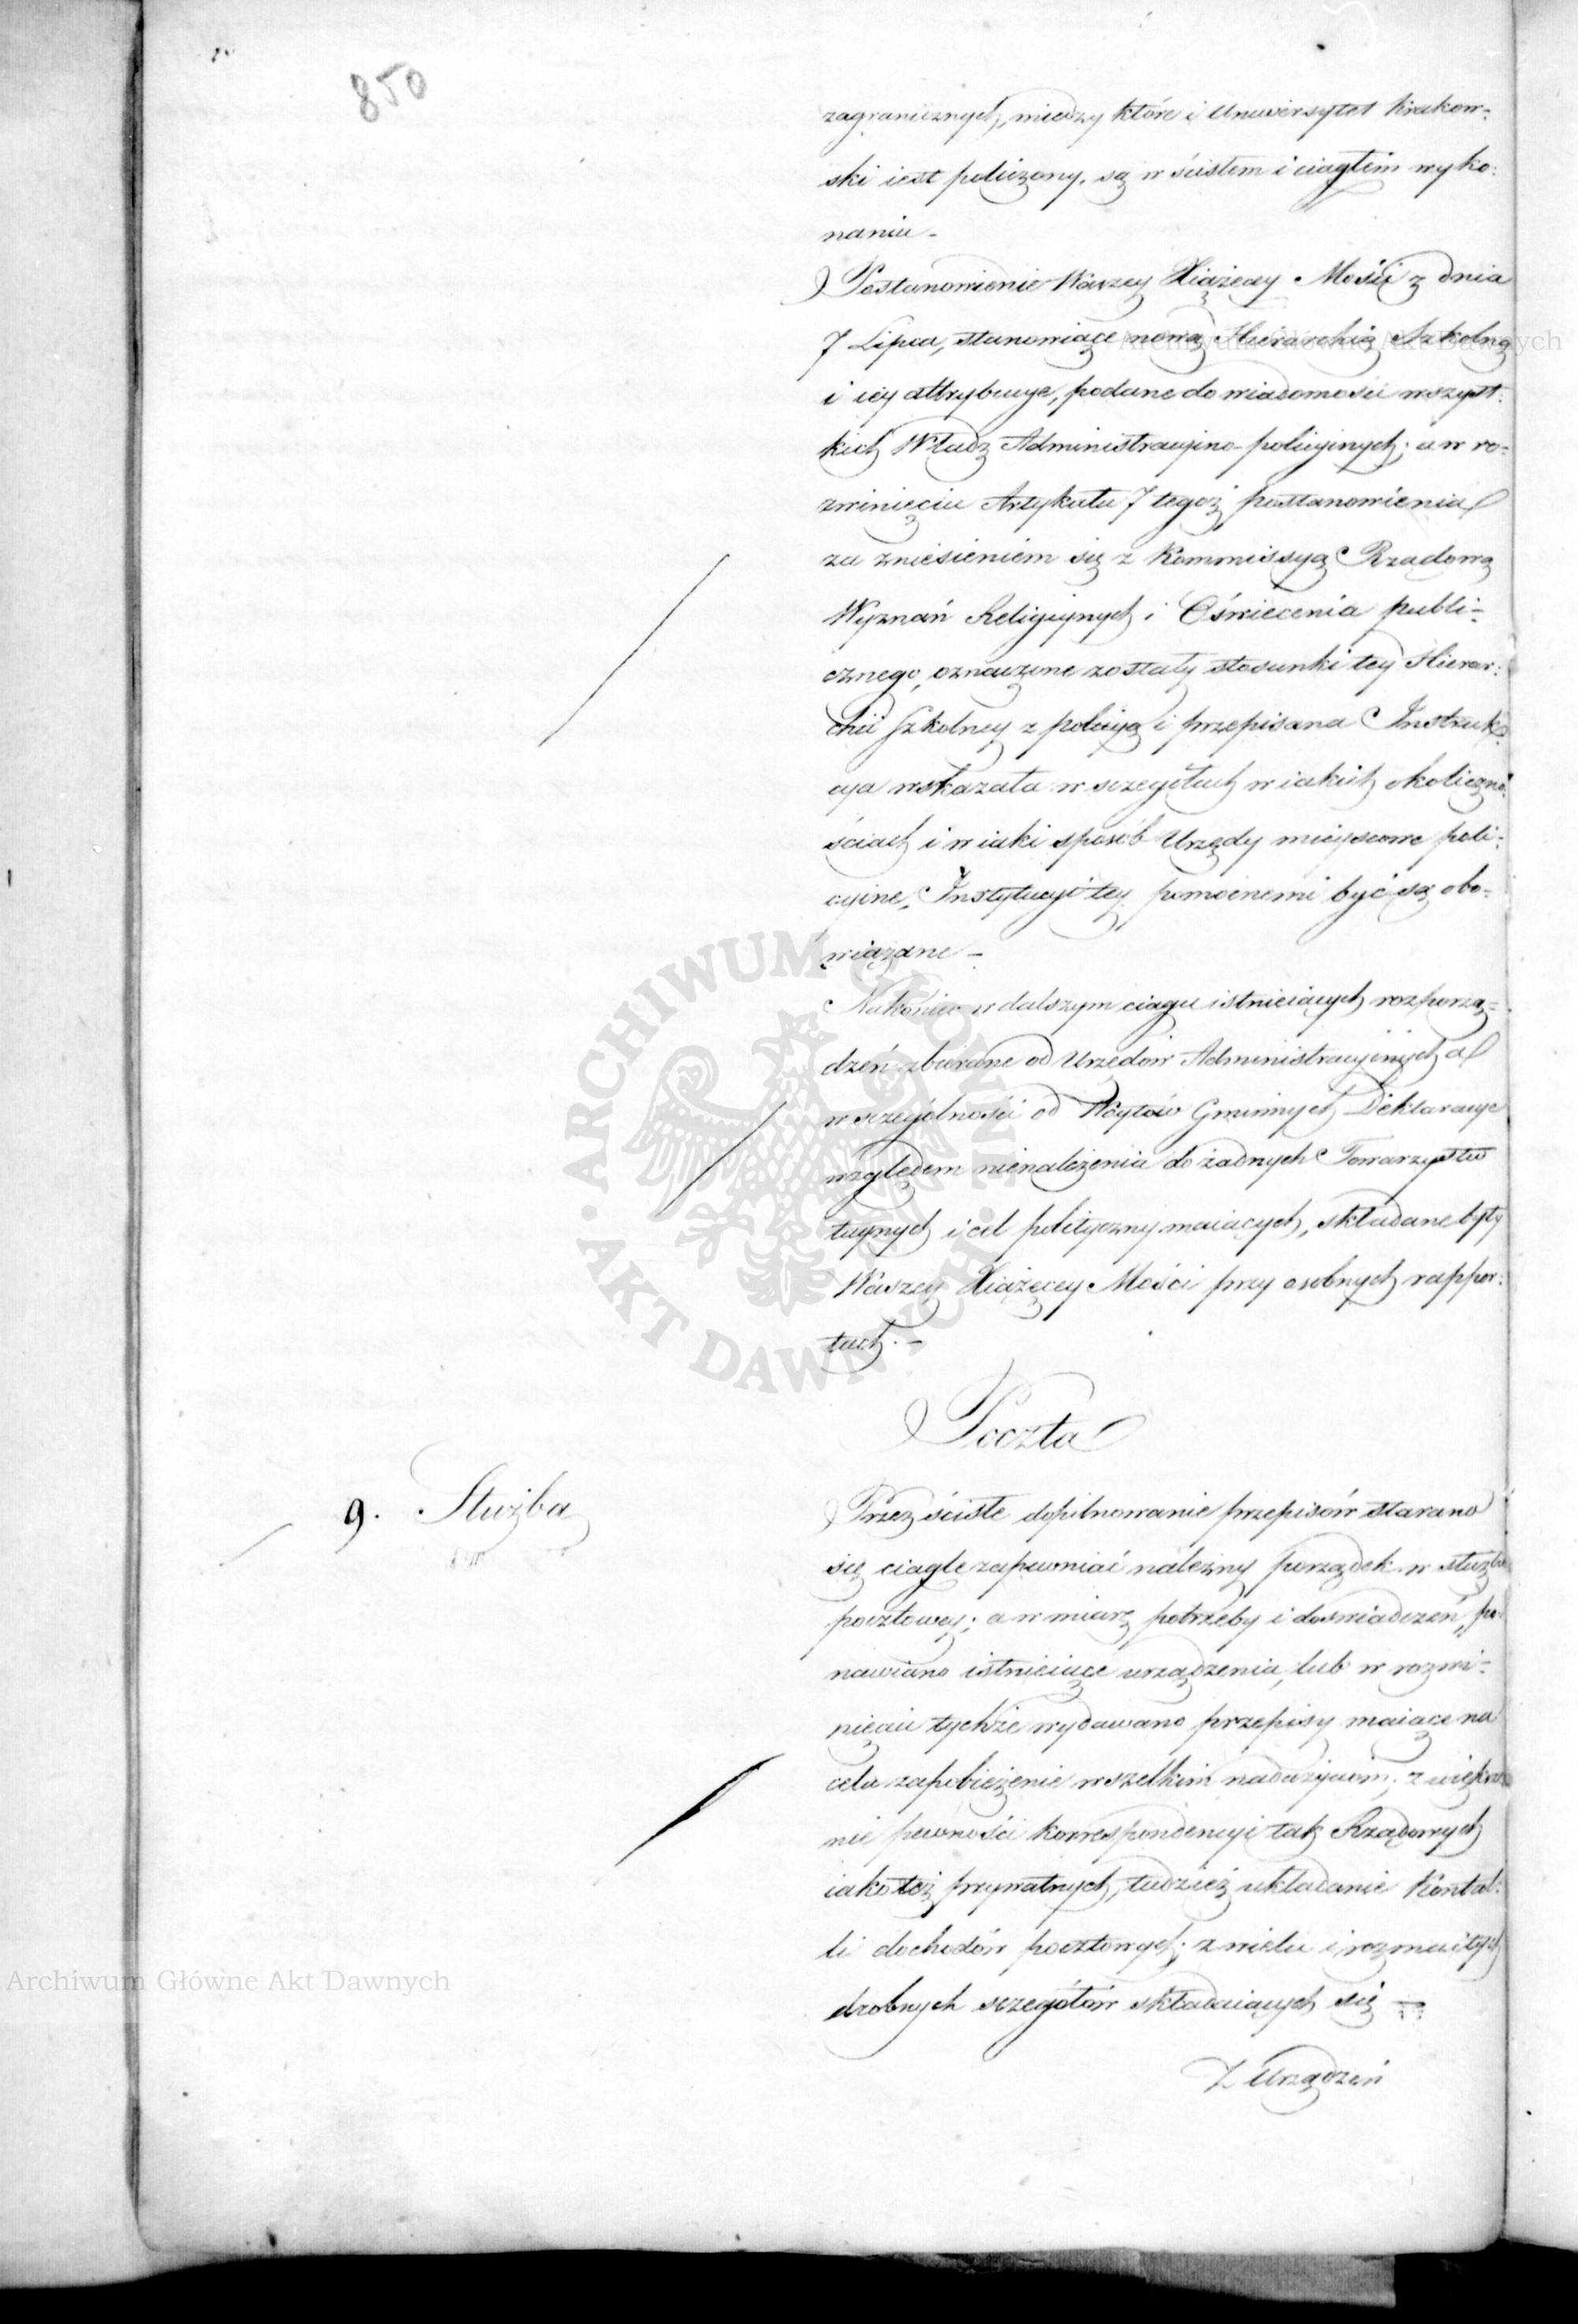 850
zagranicznych, miedzy które i Uniwersytet Krakow-
ski iest policzony, są w ścisłem i ciągłem wyko-
naniu -
Postanowienie Waszey Xiążęcey Mości z dnia
7 Lipca, stanowiące nową Hierarchią Szkolną
i iey attrybucye, podane do wiadomości wszyst-
kich Władz Administracyino-policyinych; a w ro-
zwinięciu Artykułu 7 tegoż postanowienia
za zniesieniem się z Kommissyą Rządową
Wyznań Religiynych i Oświecenia publi-
cznego, oznaczone zostały stosunki tey Hierar-
chii Szkolney z policyą i przepisana Instruk-
cya wskazała w szczegółach w iakich okoliczno-
ściach i w iaki sposób Urzędy mieyscowe poli-
cyine, Instytucyi tey pomocnemi być są obo-
wiązane -
Nakoniec w dalszym ciągu istnieiących rozporzą-
dzeń zbierane od Urzędów Administracyinych a
w szczególności od Wóytów Gminnych Deklaracye
względem nienależenia do żadnych Towarzystw
taynych i cel polityczny maiących, składane były
Waszey Xiążęcey Mości przy osobnych rappor-
tach. -
Poczta
9. Służba
Przez ścisłe dopilnowanie przepisów starano
się ciągle zapewniać należny porządek w służbie
pocztowey; a w miarę potrzeby i doświadczeń, po-
nawiano istnieiące urządzenia, lub w rozwi-
nięciu tychże wydawano przepisy maiące na
celu zapobieżenie wszelkim nadużyciom; zwiększe
nie pewności korrespondencyi tak Rządowych
iako też prywatnych, tudzież układanie Kontrol-
li dochodów pocztowych; z wielu i rozmaitych
drobnych szczegółów składaiących się -
Z Urządzeń
Archiwum Główne Akt Dawnych
Archiwum Główne Akt Dawnych
ARCHIWUM GŁÓWNE AKT DAWNYCH